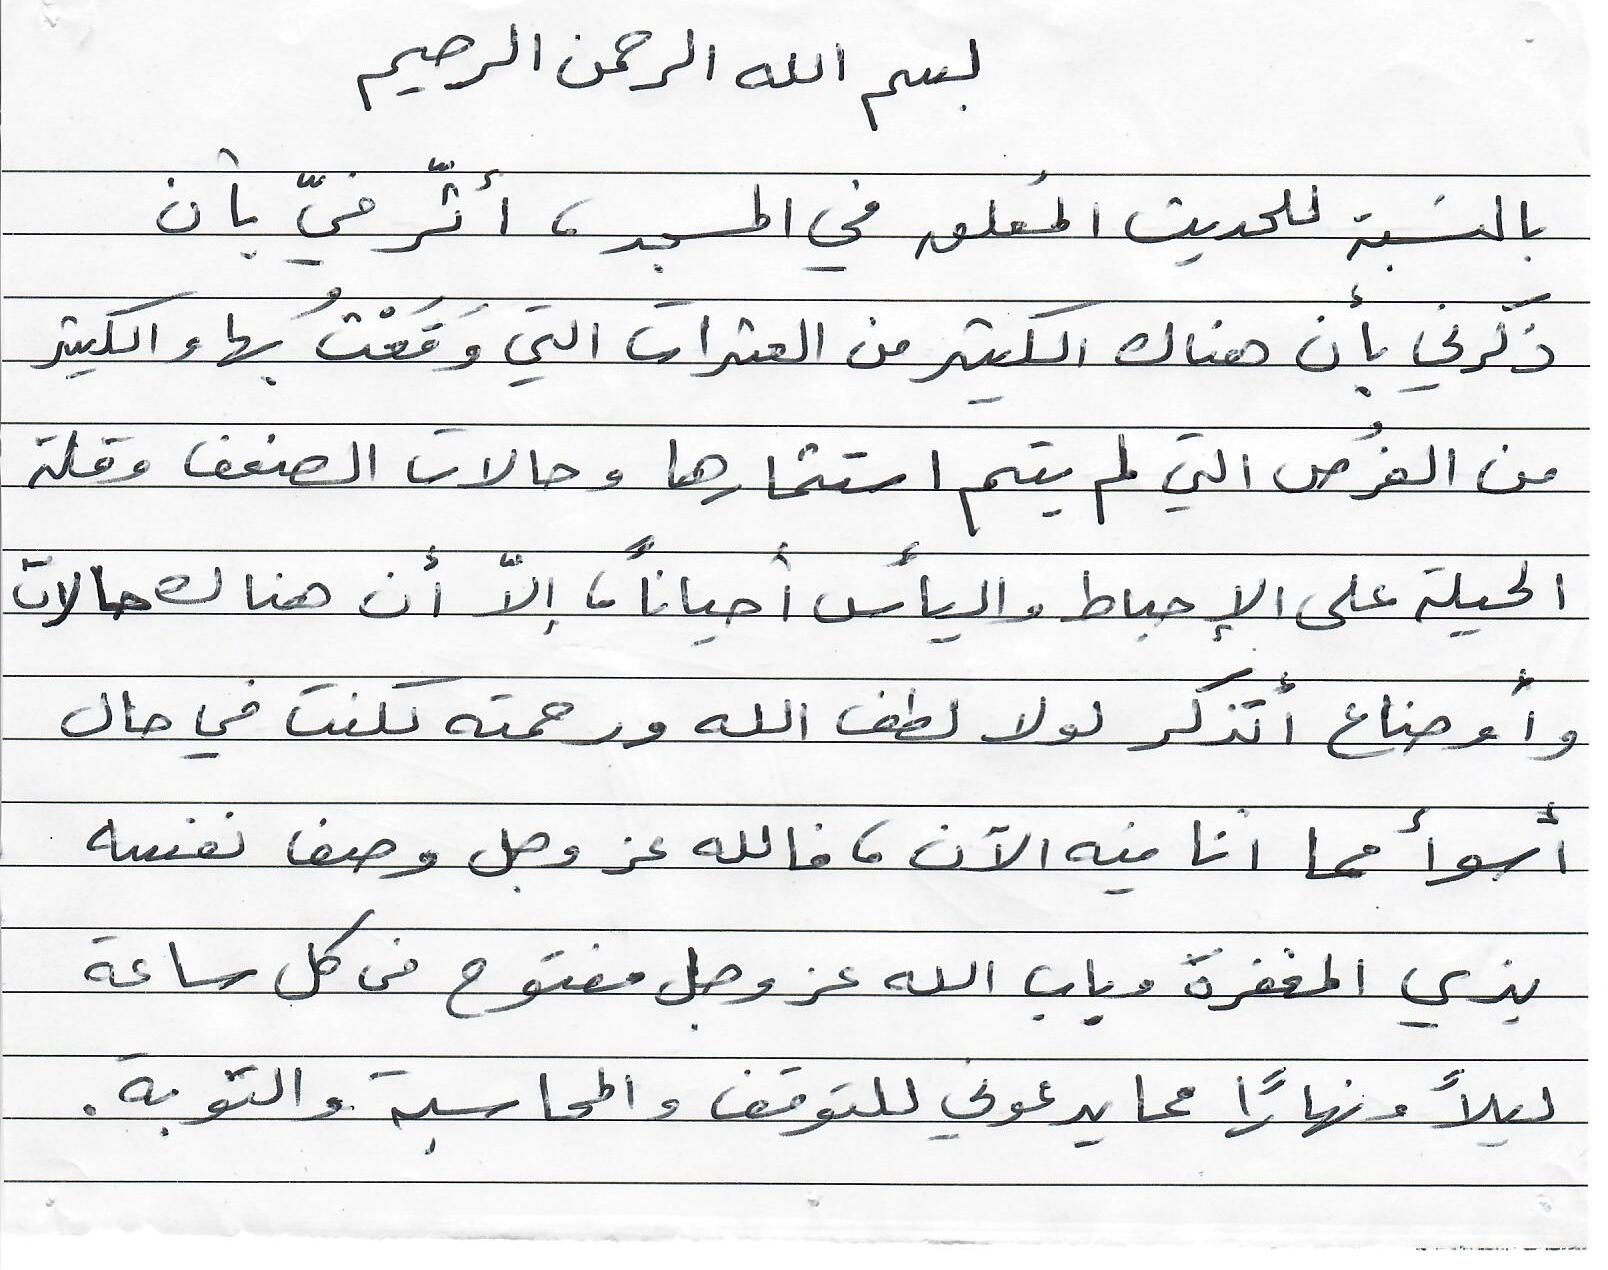 بسم الله الرحمن الرحيم
بالنسبة للحديث المُعلق في المسجد، أثّر فيّ بأن
ذكّرني بأن هناك الكثير من العثرات التي وَقَعْتُ بها والكثير
من الفرُص التي لم يتم استثمارها وحالات الضعف وقلة
الحيلة على الإحباط واليأس أحياناً، إلاّ أن هناك حالات
وأوضاع أتذكر لولا لطف الله ورحمته لكنت في حال
أسوأ مما أنا فيه الآن، فالله عز وجل وصف نفسه
بذي المغفرة وباب الله عز وجل مفتوح في كل ساعة
ليلاً ونهارًا مما يدعوني للتوقف والمحاسبة والتوبة.